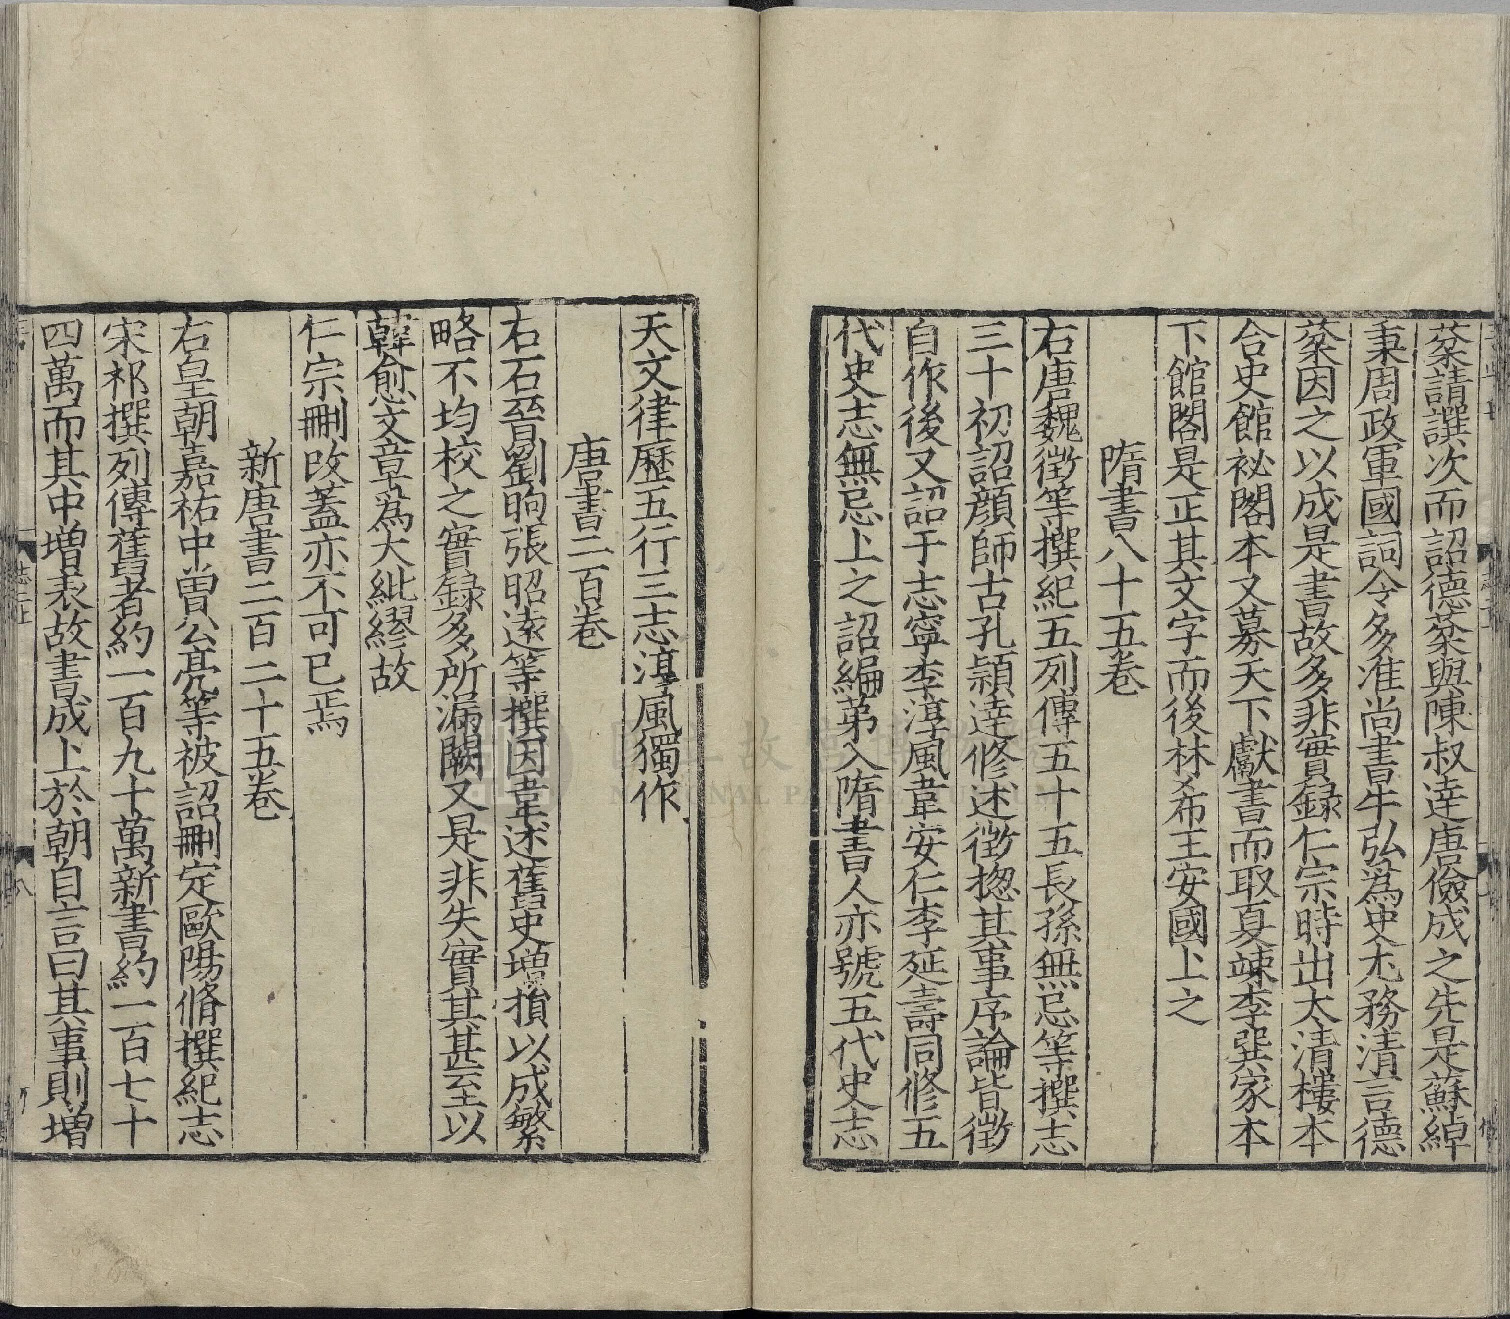 棻請譔次而詔德棻與陳叔達唐儉成之先是蘇綽
秉周政軍國詞令多准尚書牛弘為史尤務清言德
棻因之以成是書故多非實録仁宗時出太清樓本
合史館祕閣本又募天下獻書而取夏竦李巽家本
下館閣是正其文字而後林希王安國上之
隋書八十五卷
右唐魏徵等撰紀五列傳五十五長孫無忌等撰志
三十初詔顔師古孔穎達修述徵揔其事序論皆徵
自作後又詔于志寧李淳風韋安仁李延壽同修五
代史志無忌上之詔編第入隋書人亦號五代史志
天文律歷五行三志淳風獨作
唐書二百卷
右石晉劉昫張昭遠等撰因韋述舊史増損以成繁
略不均校之實録多所漏闕又是非失實其甚至以
韓愈文章為大紕繆故
仁宗刪改蓋亦不可已焉
新唐書二百二十五卷
右皇朝嘉祐中曽公亮等被詔刪定歐陽脩撰紀志
宋祁撰列傳舊書約一百九十萬新書約一百七十
四萬而其中増表故書成上於朝自言曰其事則増